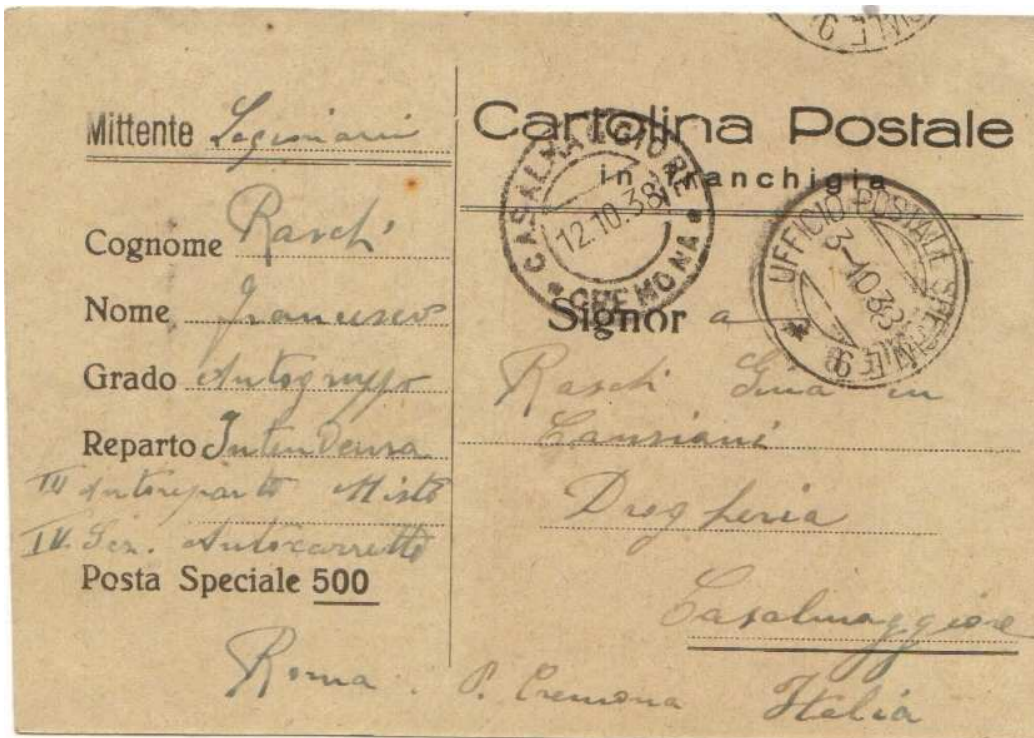 Mittente Legionari
Cognome Raschi
Nome Francesco
Grado Autogruppo
Reparto Intendenza
III Autoreparto Misto
IV. Sez. Autocarrette
Posta Speciale 500
Roma
Cartolina Postale
in franchigia
CASALMAGGIORE
12.10.38
* CREMONA *
UFFICIO POSTALE SPECIALE 9
3-10 38
Signor a
Raschi Gina in
Drogheria
Casalmaggiore
P. Cremona Italia